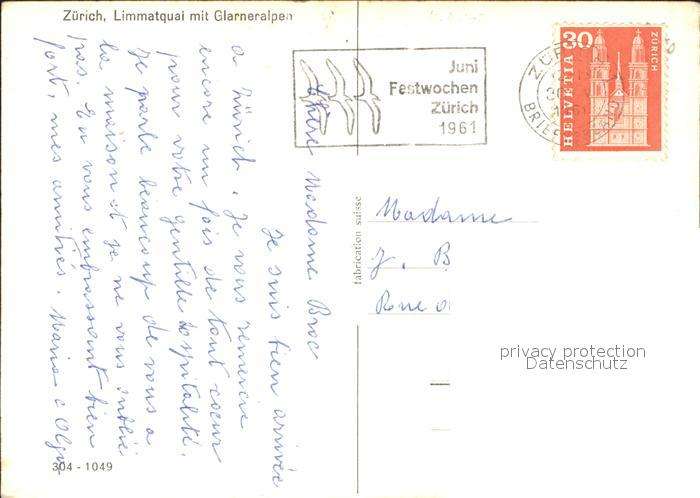 Zürich, Limmatquai mit Glarneralpen
Juni
Festwochen
Zürich
1961
30
HELVETIA
ZÜRICH
ZÜR
BRIEF
Chère Madame Broc
Je suis bien arrivée
à Zürich. Je vous remercie
encore un fois de tout coeur
pour votre gentille hospitalité.
Je parle beaucoup de vous a
la maison et je ne vous oublie
pas. En vous embrassant bien
fort, mes amitiés. Maria - Olga
fabrication suisse
Madame
J. B
Rue d
privacy protection
Datenschutz
304 - 1049